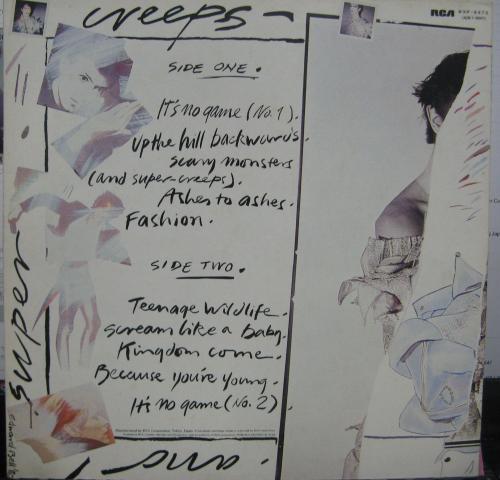 creeps
RCA
SIDE ONE.
It's no game (No. 1).
Up the hill backwards.
scary monsters
(and super-creeps).
Ashes to ashes.
Fashion.
SIDE TWO.
Teenage wildlife.
scream like a baby.
Kingdom come.
Because you're young.
It's no game (No. 2)
super
and